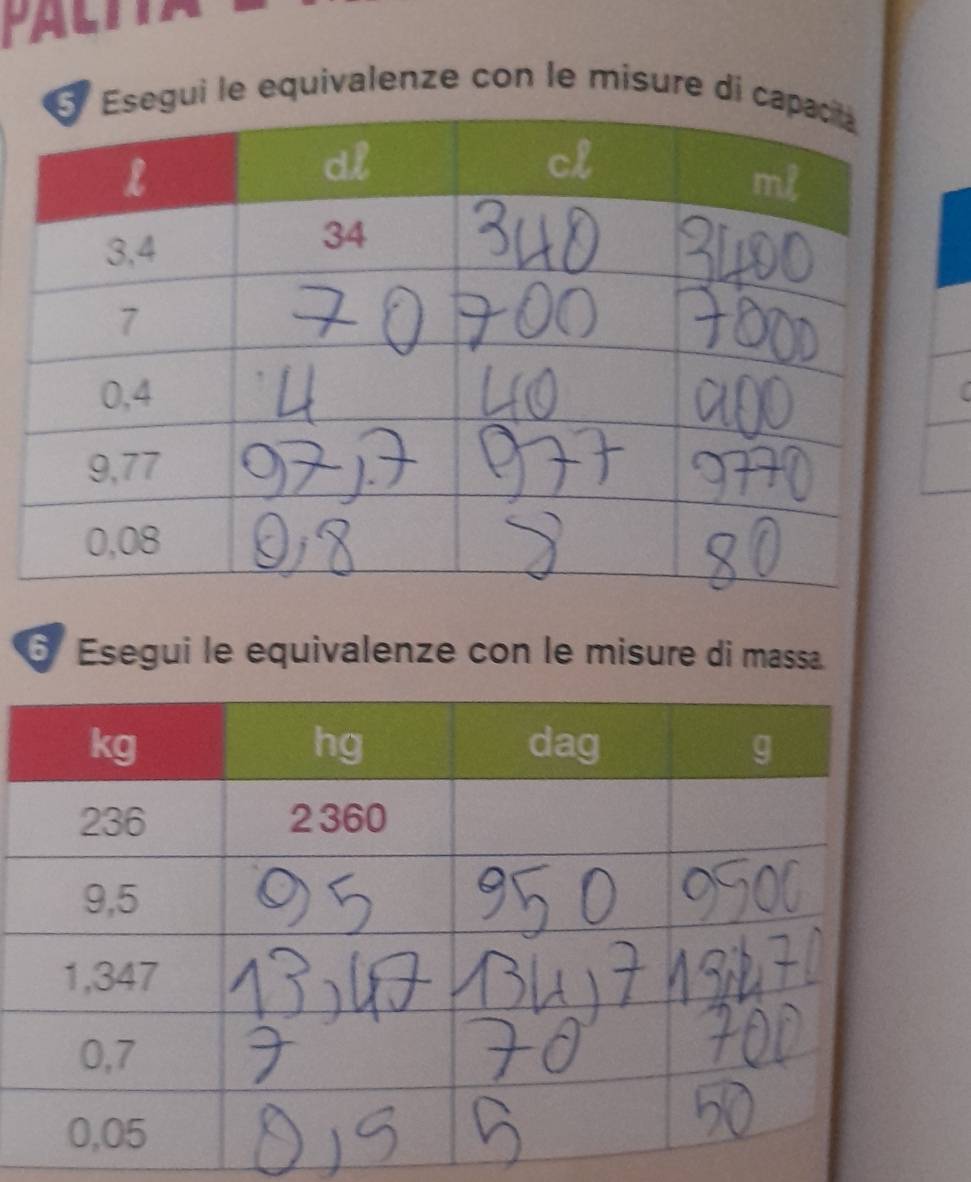 5 Esegui le equivalenze con le misure di capacità
l dl cl ml
3,4 34 340 3400
7 70 700 7000
0,4 4 40 400
9,77 97,7 977 9770
0,08 0,8 8 80
6 Esegui le equivalenze con le misure di massa.
kg hg dag g
236 2 360
9,5 95 950 9500
1,347 13,47 134,7
0,7 7 70 700
0,05 0,5 5 50